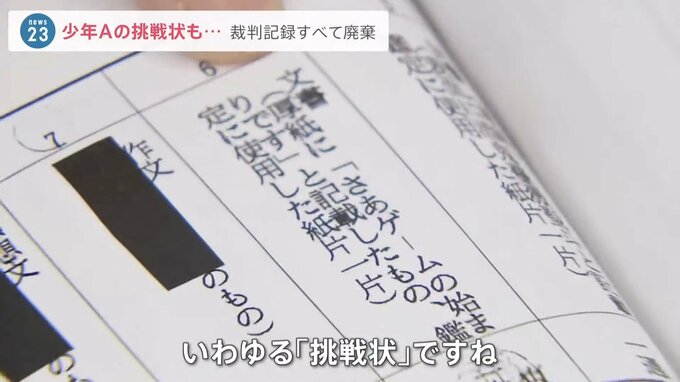 news
23
少年Aの挑戦状も… 裁判記録すべて廃棄
6
文書
(厚紙に「さあゲームの始ま
りです」と記載したもの 鑑
定に使用した紙片一片)
7
作文
のもの)
定に使用した紙片一片)
いわゆる「挑戦状」ですね